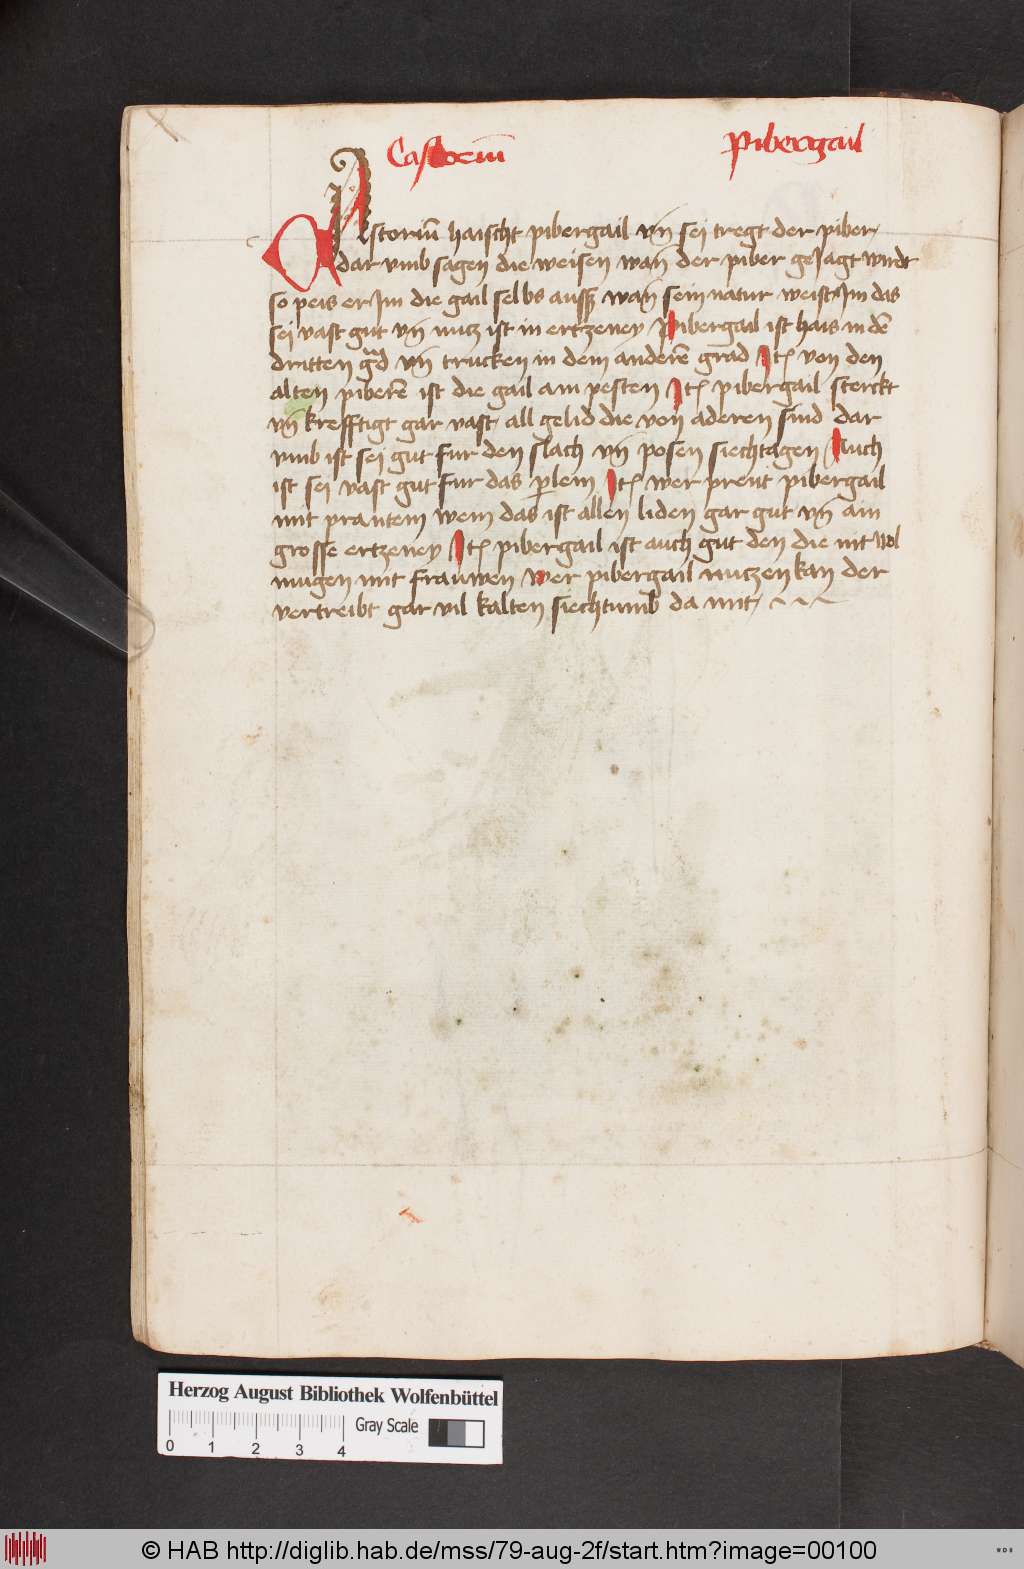 Castoriū Pibergail
CAstoriū haischt pibergail vn̄ sei tregt der piber
dar vmb sagen die weisen wan̄ der piber geJagt wirdt
so peis er Jm die gail selbs auss wan̄ sein natur weist Jm das
sei vast gut vn̄ nucz ist in ertzeney Pibergail ist hais in dē
dritten grad vn̄ trucken in dem anderē grad Jt von den
alten piberē ist die gail am pesten Jt pibergail sterckt
vn̄ krefftigt gar vast all gelid die von aderen sind dar
vmb ist sei gut fur den slach vn̄ posen siechtagen Auch
ist sei vast gut fur das perlem Jt wer prent pibergail
mit prantem wein das ist allen liden gar gut vn̄ ain
grosse ertzeney Jt pibergail ist auch gut den die nit wol
mugen mit frauwen wer pibergail nuczen kan der
vertreibt gar vil kalten siechtumb da mit
Herzog August Bibliothek Wolfenbüttel
Gray Scale
0 1 2 3 4
© HAB http://diglib.hab.de/mss/79-aug-2f/start.htm?image=00100